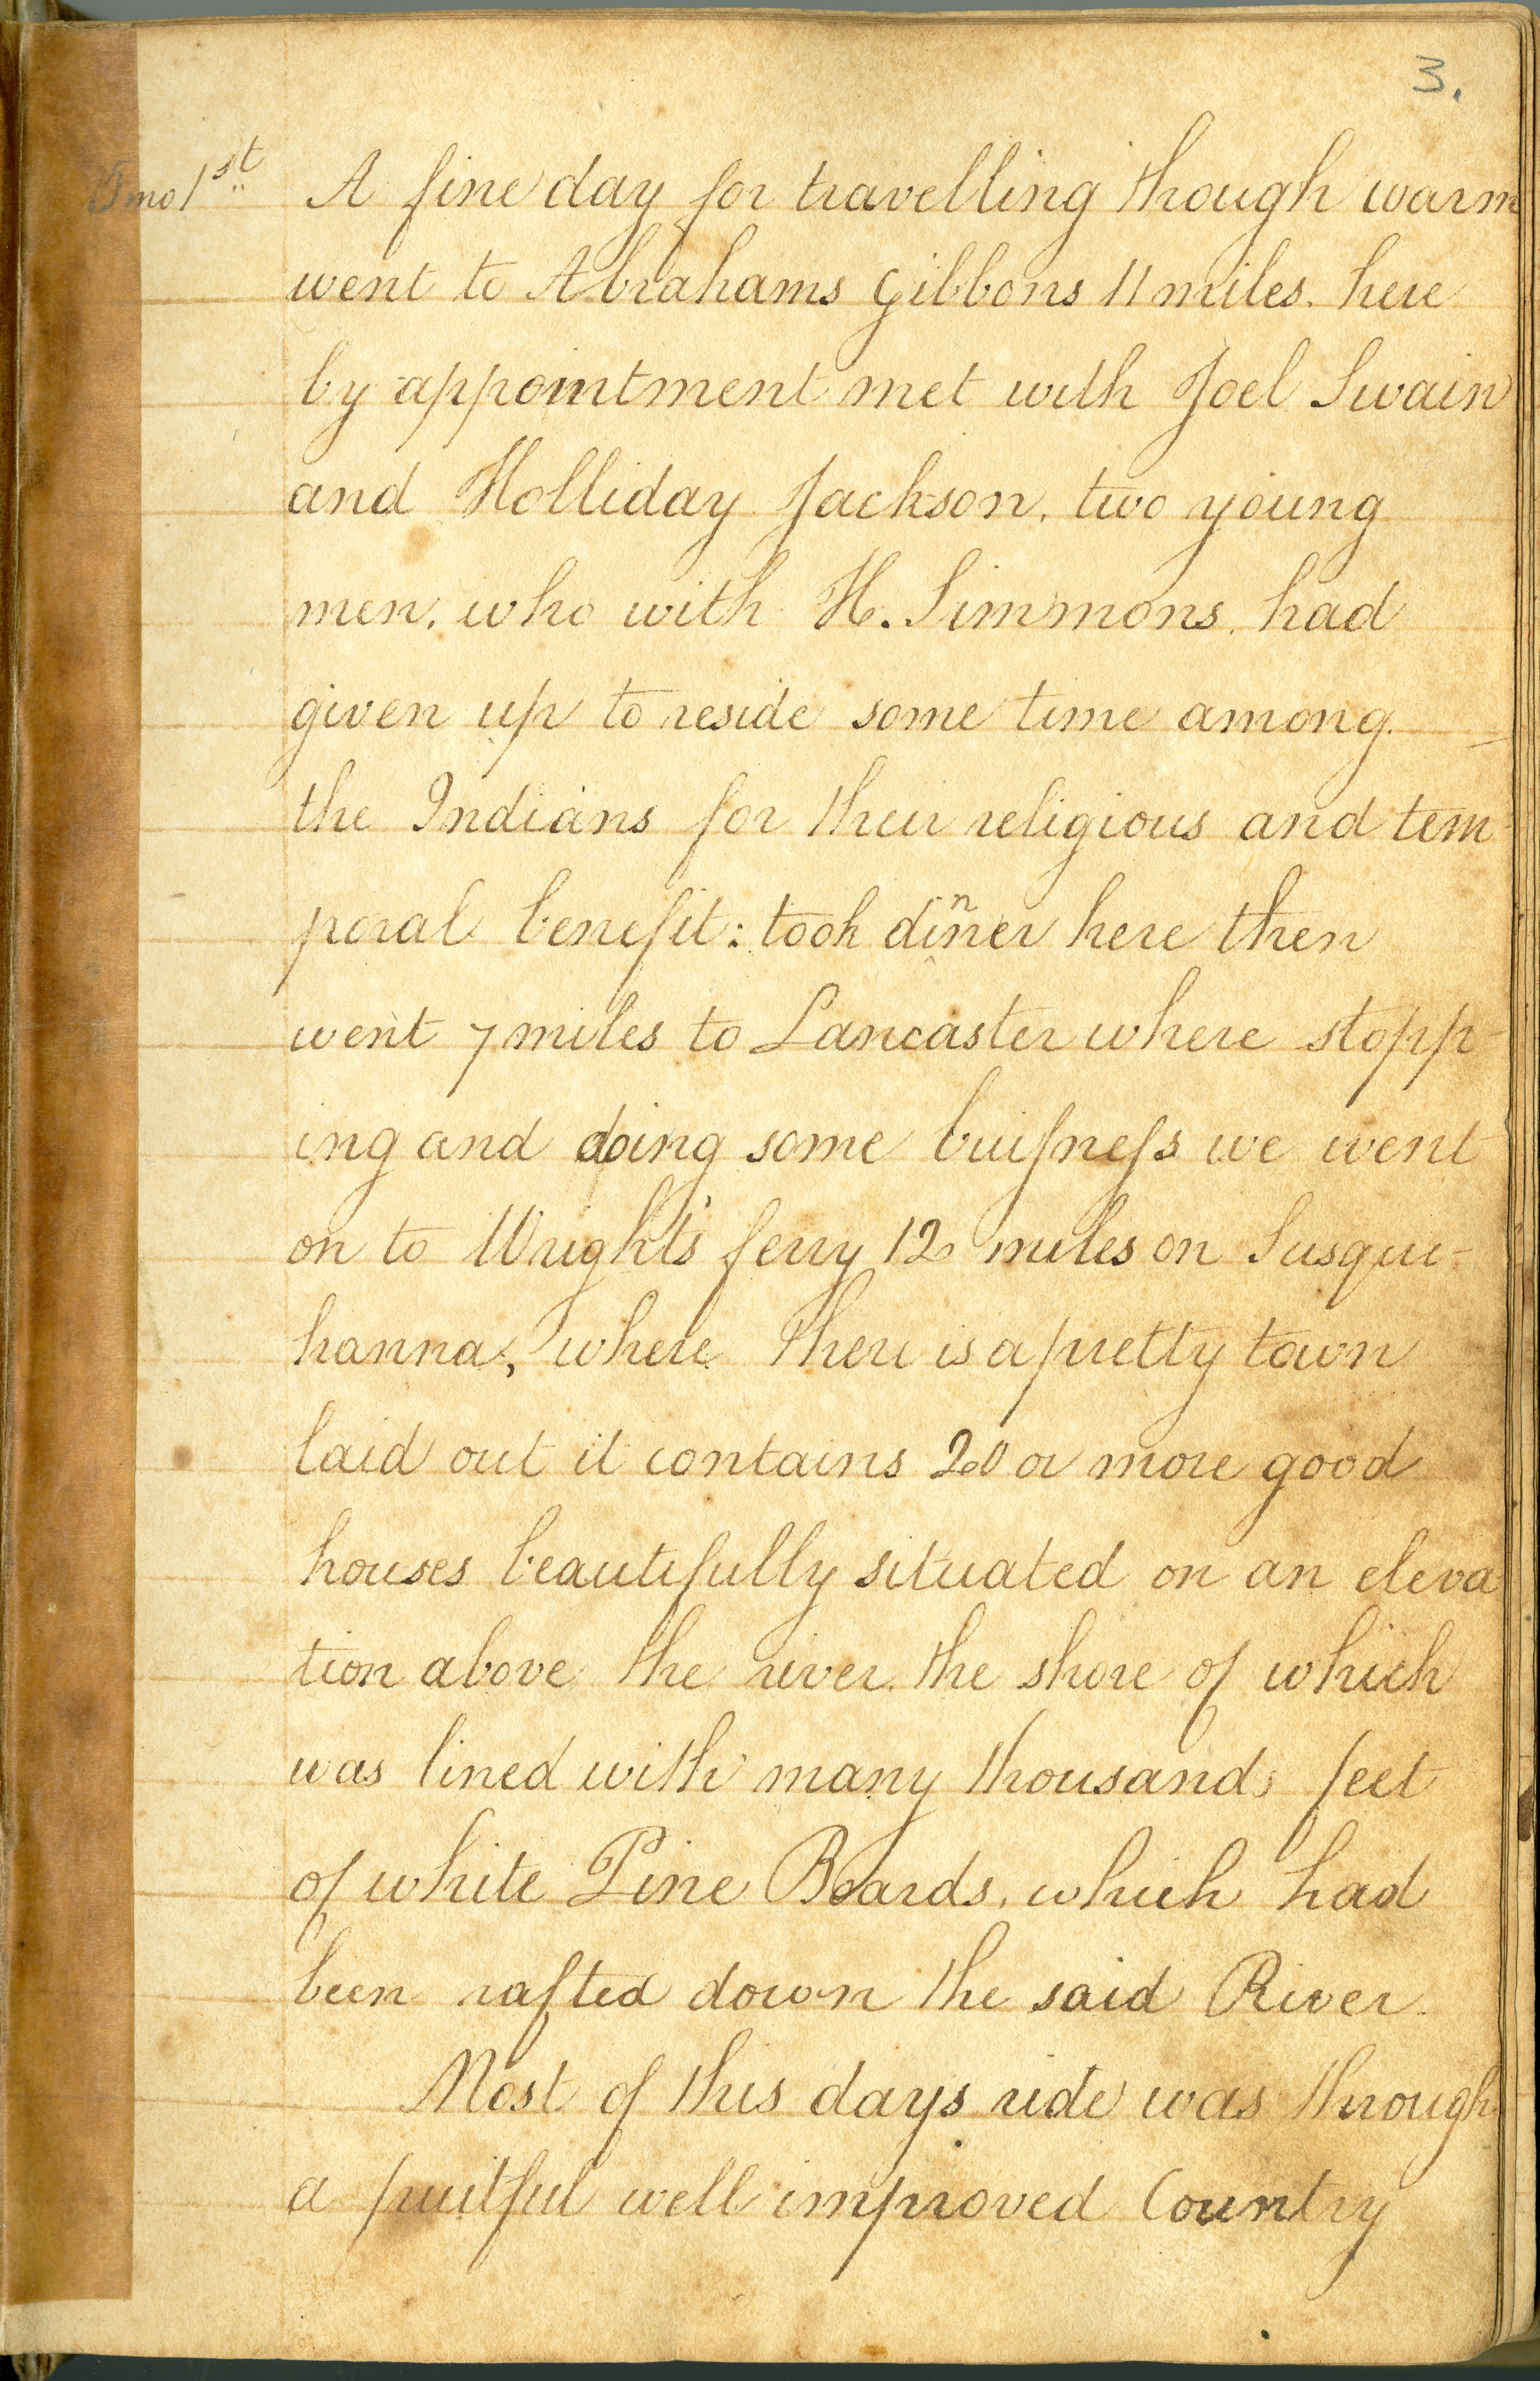 3.
5mo 1st A fine day for travelling though warm
went to Abrahams Gibbons 11 miles. here
by appointment met with Joel Swain
and Holliday Jackson, two young
men, who with H. Simmons, had
given up to reside some time among
the Indians for their religious and tem-
poral benefit: took dinner here then
went 7 miles to Lancaster where stopp-
ing and doing some buiſneſs we went
on to Wright's ferry 12 miles on Susque-
hanna, where there is a pretty town
laid out it contains 20 or more good
houses beautifully situated on an eleva-
tion above the river. the shore of which
was lined with many thousands feet
of white Pine Boards, which had
been rafted down the said River.
Most of this days ride was through
a fruitful well improved Country